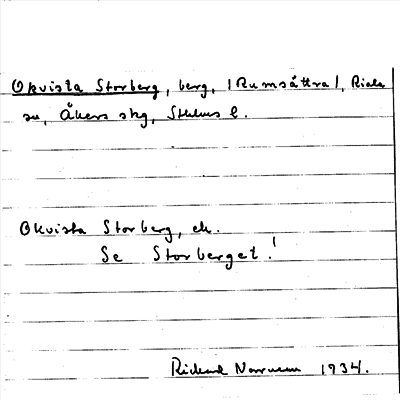 Okvista Storberg, berg, /Rumsättra/, Riala
sn, Åkers skg, Sthlms l.
Okvista Storberg, ek.
Se Storberget!
Rickard 1934.